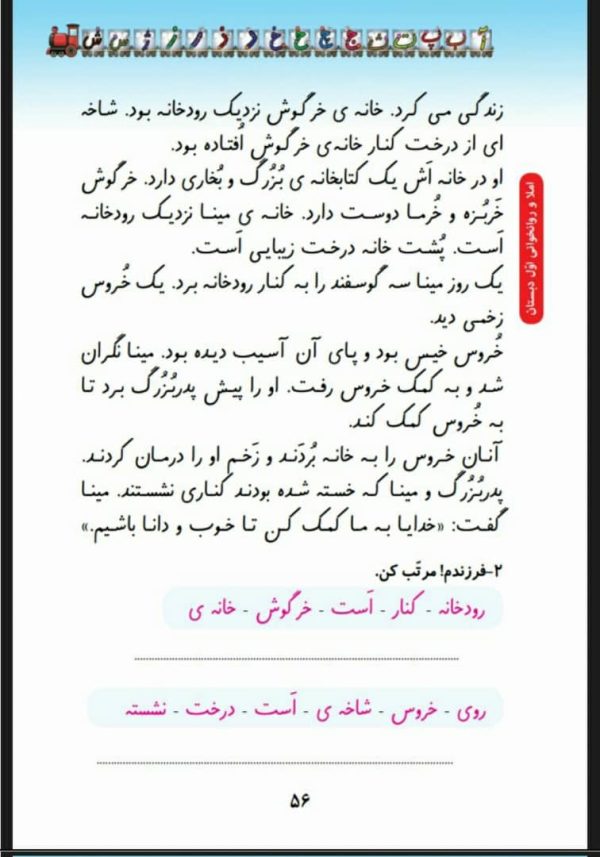 آ ب پ ت ث ج چ ح خ د ذ ر ز ژ س ش
زندگی می کرد. خانه ی خرگوش نزدیک رودخانه بود. شاخه
ای از درخت کنار خانه‌ی خرگوش اُفتاده بود.
او در خانه اَش یک کتابخانه ی بُزُرگ و بُخاری دارد. خرگوش
خَربُزه و خُرما دوست دارد. خانه ی مینا نزدیک رودخانه
اَست. پُشت خانه درخت زیبایی اَست.
یک روز مینا سه گوسفند را به کنار رودخانه برد. یک خُروس
زخمی دید.
خُروس خیس بود و پای آن آسیب دیده بود. مینا نگران
شد و به کمک خروس رفت. او را پیش پدربُزُرگ برد تا
به خُروس کمک کند.
آنان خروس را به خانه بُردَند و زَخم او را درمان کردند.
پدربُزُرگ و مینا که خسته شده بودند کناری نشستند. مینا
گفت: «خدایا به ما کمک کن تا خوب و دانا باشیم.»
املا و روانخوانی اوّل دبستان
۲-فرزندم! مرتّب کن.
رودخانه - کنار - اَست - خرگوش - خانه ی
روی - خروس - شاخه ی - اَست - درخت - نشسته
۵۶